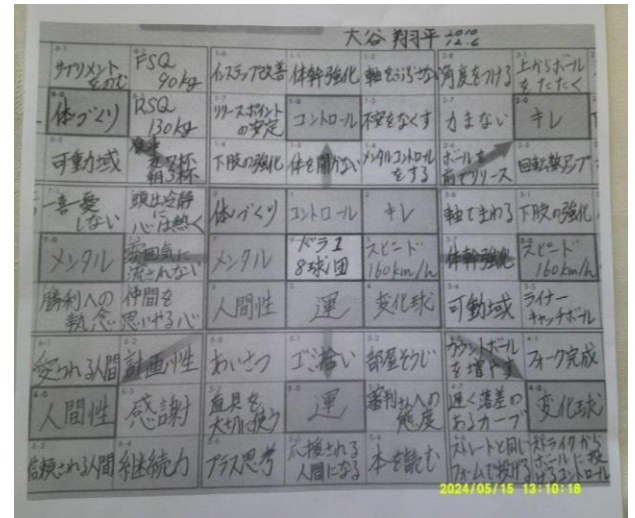 大谷翔平 2010 12.6
サプリメントをのむ FSQ 90kg インステップ改善 体幹強化 軸をぶらさない 角度をつける 上からボールをたたく
体づくり RSQ 130kg リリースポイントの安定 コントロール 不安をなくす 力まない キレ
可動域 食事 夜7杯 朝3杯 下肢の強化 体を開かない メンタルコントロールをする ボールを前でリリース 回転数アップ
一喜一憂しない 頭は冷静に心は熱く 体づくり コントロール キレ 軸でまわる 下肢の強化
メンタル 雰囲気に流されない メンタル ドラ1 8球団 スピード 160km/h 体幹強化 スピード 160km/h
勝利への執念 仲間を思いやる心 人間性 運 変化球 可動域 ライナーキャッチボール
愛される人間 計画性 あいさつ ゴミ拾い 部屋そうじ カウントボールを増やす フォーク完成
人間性 感謝 道具を大切に使う 運 審判さんへの態度 遅く落差のあるカーブ 変化球
信頼される人間 継続力 プラス思考 応援される人間になる 本を読む ストレートと同じフォームで投げる ストライクからボールに投げるコントロール
2024/05/15 13:10:18